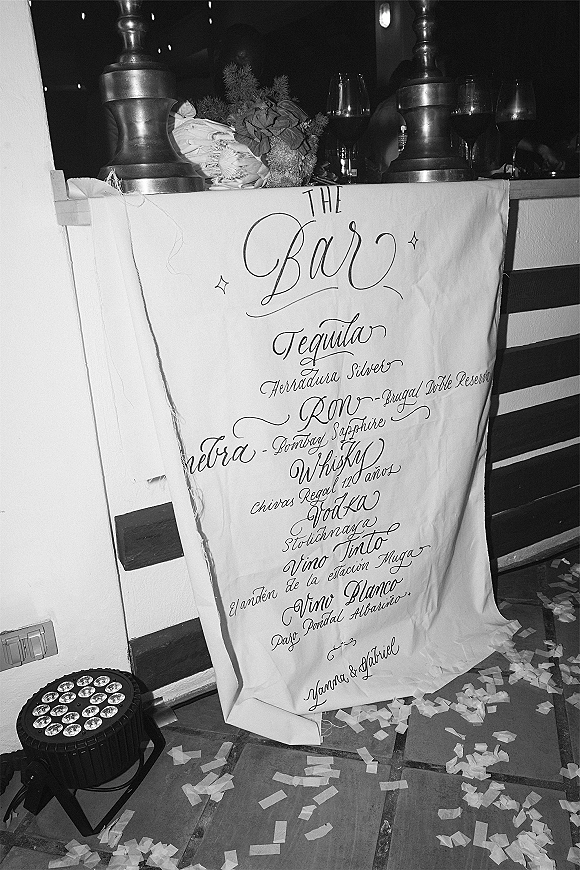 THE
Bar
Tequila
Herradura Silver
Ron - Brugal Doble Reserva
nebra - Bombay Sapphire
Whisky
Chivas Regal 12 años
Vodka
Stolichnaya
Vino Tinto
El andén de la estación Muga
Vino Blanco
Pazo Pondal Albariño.
Yanna & Gabriel